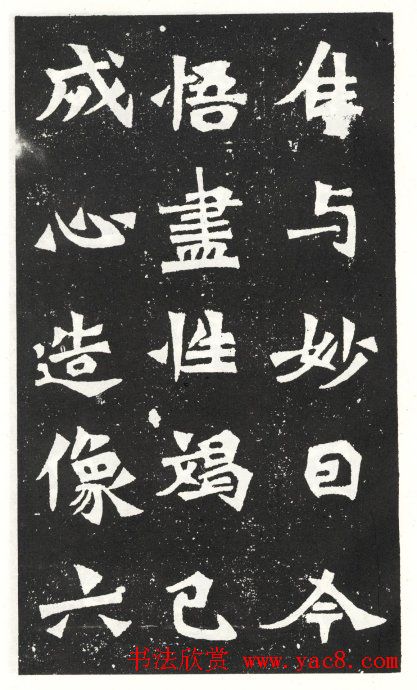 隹与妙日今
悟盡性竭己
成心造像六
书法欣赏 www.yac8.com